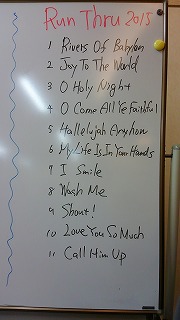 Run Thru 2015
1 Rivers Of Babylon
2 Joy To The World
3 O Holy Night
4 O Come All Ye Faithful
5 Hallelujah Anyhow
6 My Life Is In Your Hands
7 I Smile
8 Wash Me
9 Shout!
10 Love You So Much
11 Call Him Up